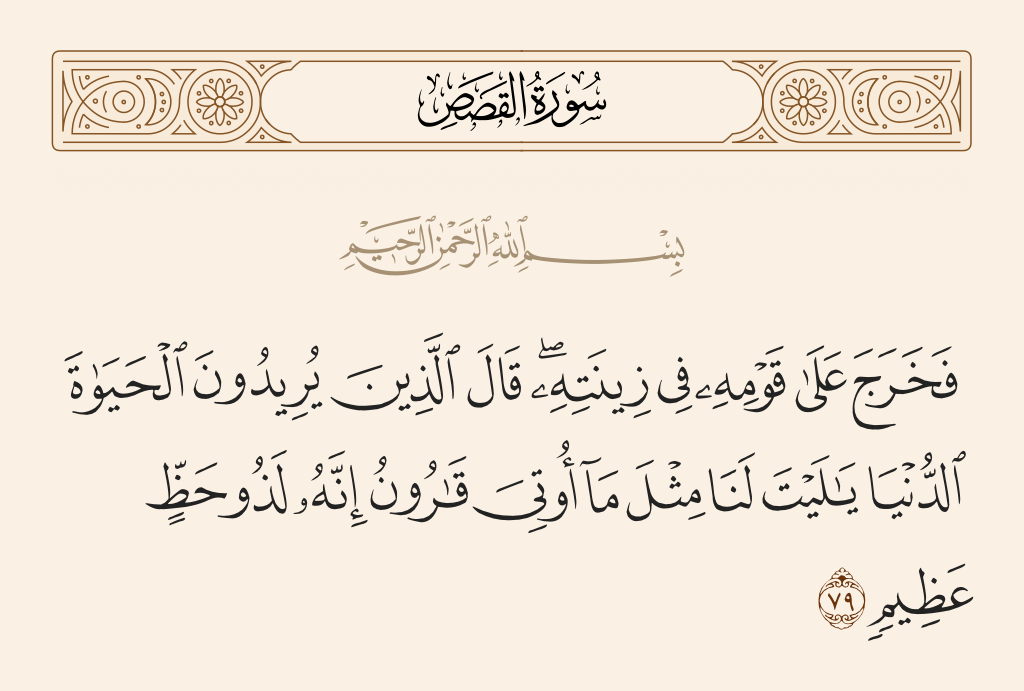 سُورَةُ القَصَصِ
بِسْمِ ٱللَّهِ ٱلرَّحْمَٰنِ ٱلرَّحِيمِ
فَخَرَجَ عَلَىٰ قَوْمِهِۦ فِى زِينَتِهِۦ ۖ قَالَ ٱلَّذِينَ يُرِيدُونَ ٱلْحَيَوٰةَ
ٱلدُّنْيَا يَـٰلَيْتَ لَنَا مِثْلَ مَآ أُوتِىَ قَـٰرُونُ إِنَّهُۥ لَذُو حَظٍّ
عَظِيمٍ ٧٩